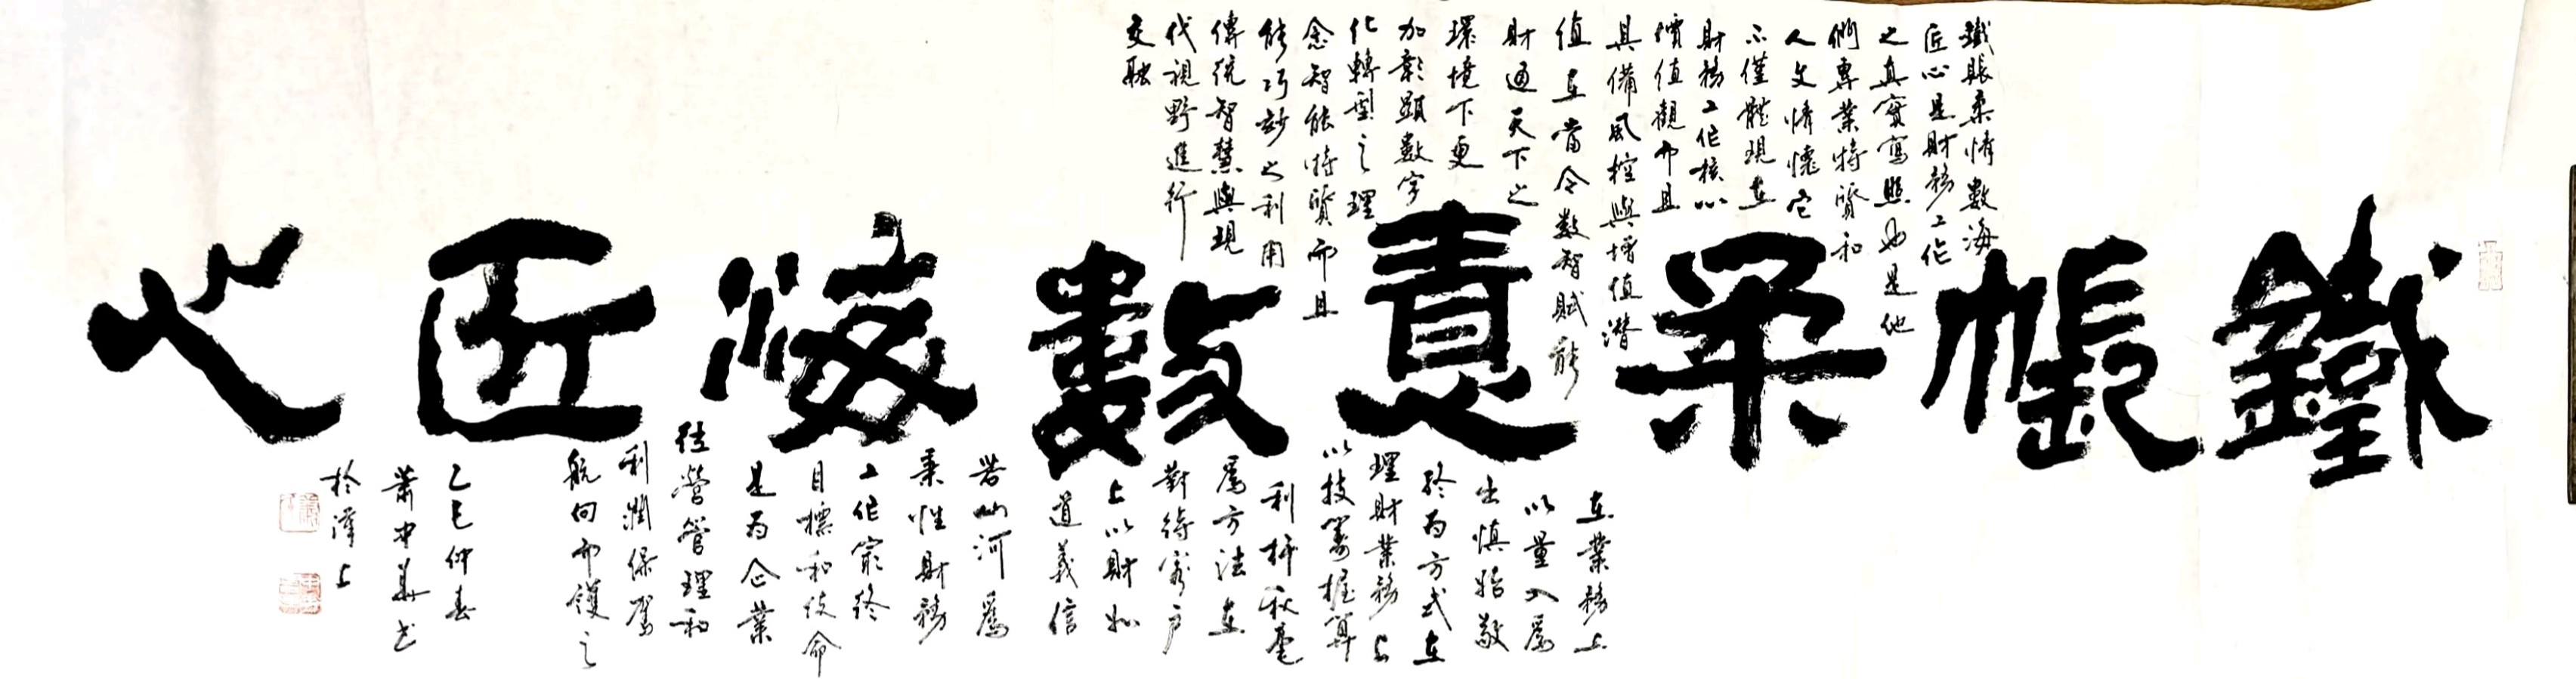 鐵帳柔情數海匠心
鐵賬柔情數海
匠心是財務工作
之真實寫照也是他
們專業特質和
人文情懷它
不僅體現在
財務工作核心
價值觀而且
具備風控與增值潛
值在當今數智賦能
財通天下之
環境下更
加彰顯數字
化轉型之理
念智能特質而且
能巧妙之利用
傳統智慧與現
代視野進行
交融
在業務上
以量入為
出慎始敬
終為方式在
理財業務上
以技籌握算
利析秋毫
為方法在
對待客戶
上以財如
道義信
若山河為
秉性財務
工作最終
目標和使命
是為企業
經營管理和
利潤保駕
航向而護之
乙巳仲春
蕭中華書
於潭上